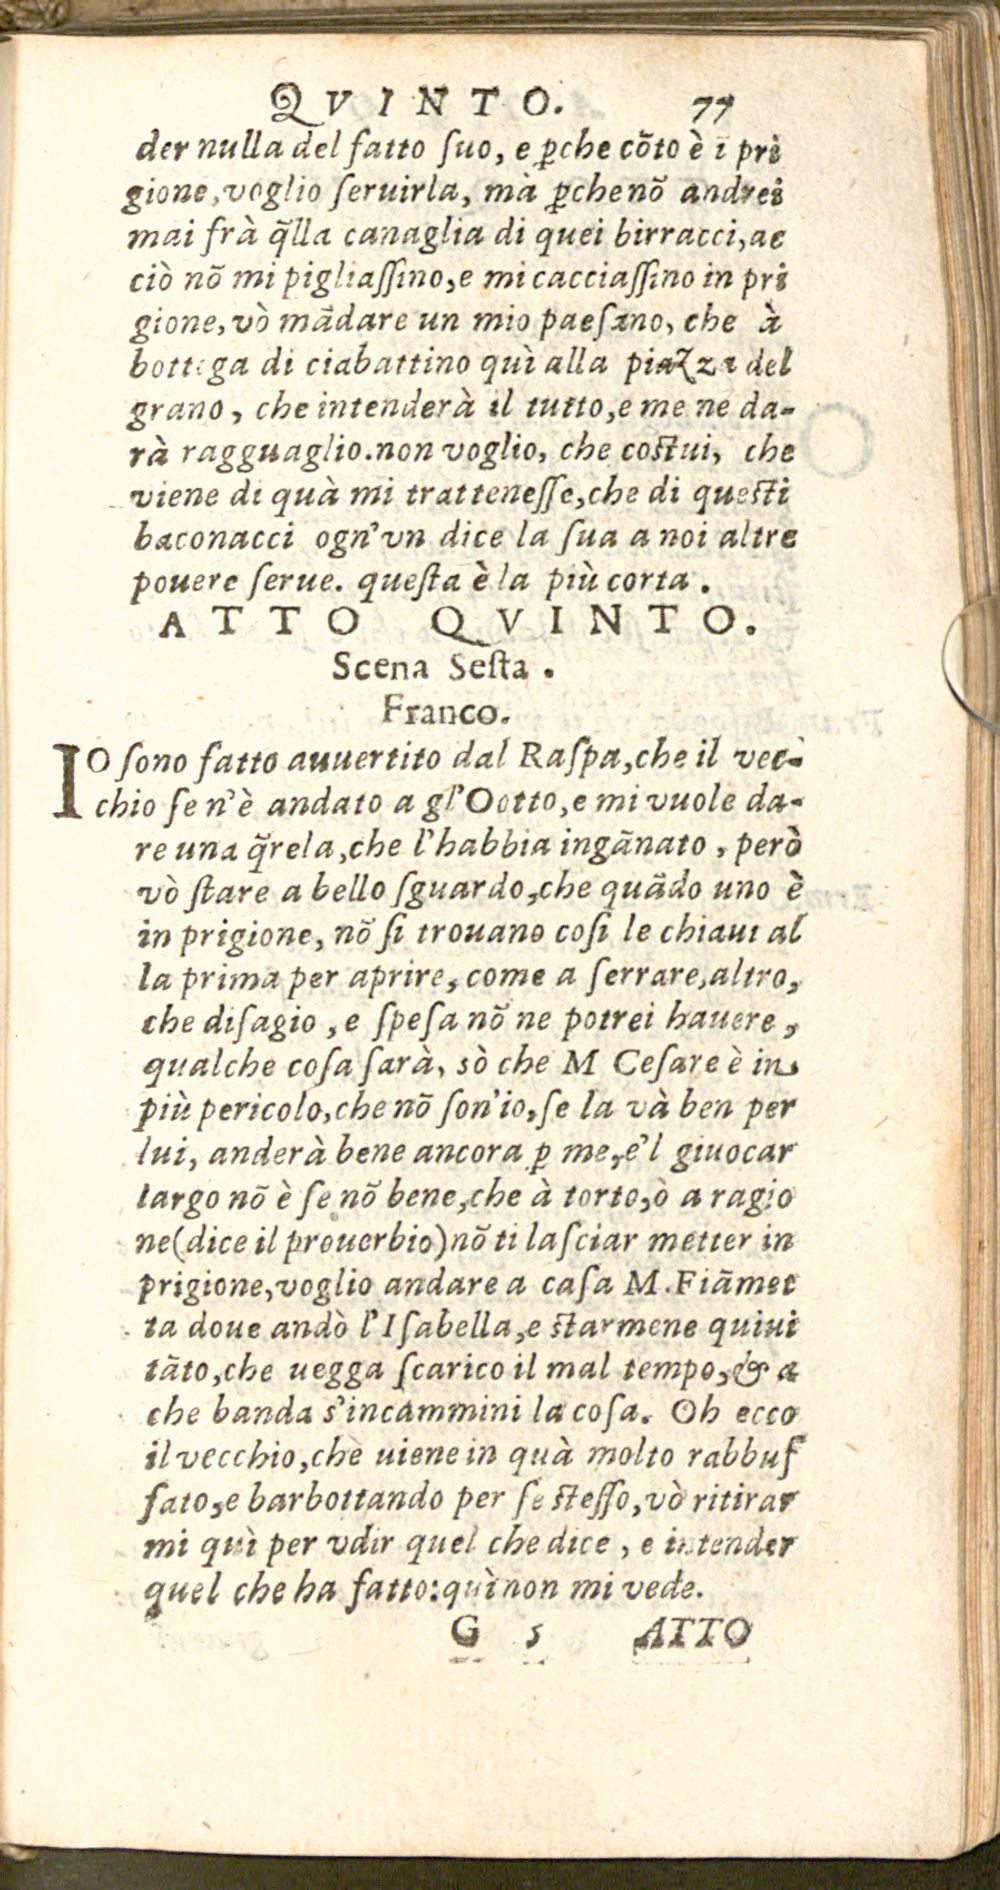 QVINTO. 77
der nulla del fatto ſuo, e ꝑche cõto è ĩ pri
gione, voglio ſeruirla, mà ꝑche nõ andrei
mai frà q̃lla canaglia di quei birracci, ac
ciò nõ mi pigliaſſino, e mi cacciaſſino in pri
gione, vò mãdare un mio paeſano, che à
bottega di ciabattino quì alla piazza del
grano, che intenderà il tutto, e me ne da-
rà ragguaglio. non voglio, che coſtui, che
viene di quà mi tratteneſſe, che di queſti
baconacci ogn'vn dice la ſua a noi altre
pouere ſerue. queſta è la più corta.
ATTO QVINTO.
Scena Seſta.
Franco.
IO ſono fatto auuertito dal Raſpa, che il vec-
chio ſe n'è andato a gl'Ootto, e mi vuole da-
re una q̃rela, che l'habbia ingãnato, però
vò ſtare a bello ſguardo, che quãdo uno è
in prigione, nõ ſi trouano coſi le chiaui al
la prima per aprire, come a ſerrare, altro,
che diſagio, e ſpeſa nõ ne potrei hauere,
qualche coſa ſarà, sò che M Ceſare è in
più pericolo, che nõ ſon'io, ſe la và ben per
lui, anderà bene ancora ꝑ me, e'l giuocar
largo nõ è ſe nõ bene, che à torto, ò a ragio
ne (dice il prouerbio) nõ ti laſciar metter in
prigione, voglio andare a caſa M. Fiãmet
ta doue andò l'Iſabella, e ſtarmene quiui
tãto, che uegga ſcarico il mal tempo, & a
che banda s'incammini la coſa. Oh ecco
il vecchio, che uiene in quà molto rabbuf
fato, e barbottando per ſe ſteſſo, vò ritirar
mi quì per vdir quel che dice, e intender
quel che ha fatto: quì non mi vede.
G 5 ATTO